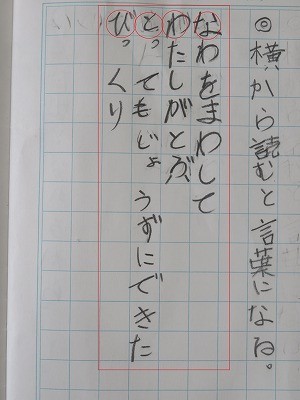 ◎横から読むと言葉になる。
なわをまわして
わたしがとぶ
とってもじょうずにできた
びっくり